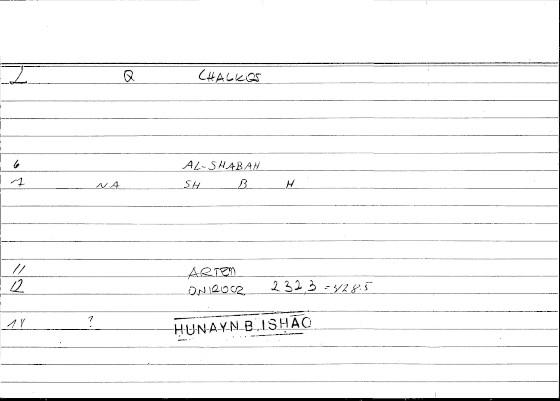 1 Q CHALKOS
6 AL-SHABAH
7 NA SH B H
11 ARTEM
12 ONIROCR 232,3 = 428.5
14 ? HUNAYN B. ISHAQ